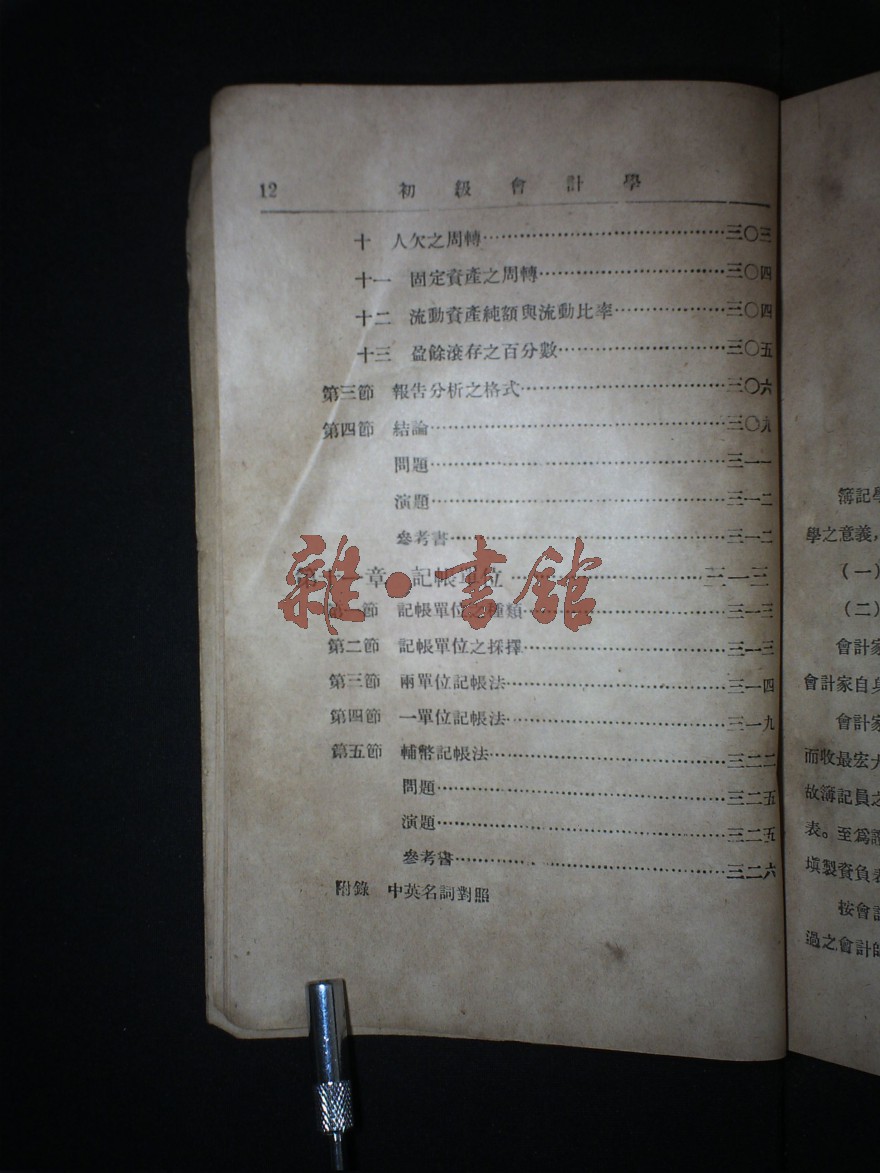 12 初級會計學
十 人欠之周轉……三〇三
十一 固定資產之周轉……三〇四
十二 流動資產純額與流動比率……三〇四
十三 盈餘滾存之百分數……三〇五
第三節 報告分析之格式……三〇六
第四節 結論……三〇九
問題……三一一
演題……三一二
參考書……三一二
第十一章 記帳單位……三一三
第一節 記帳單位之種類……三一三
第二節 記帳單位之採擇……三一三
第三節 兩單位記帳法……三一四
第四節 一單位記帳法……三一九
第五節 輔幣記帳法……三二二
問題……三二五
演題……三二五
參考書……三二六
附錄 中英名詞對照
雜·書館
簿記學
學之意義,
(一)
(二)
會計家
會計家自身
會計家
而收最宏大
故簿記員之
表。至爲證
填製資負表
按會計
過之會計師